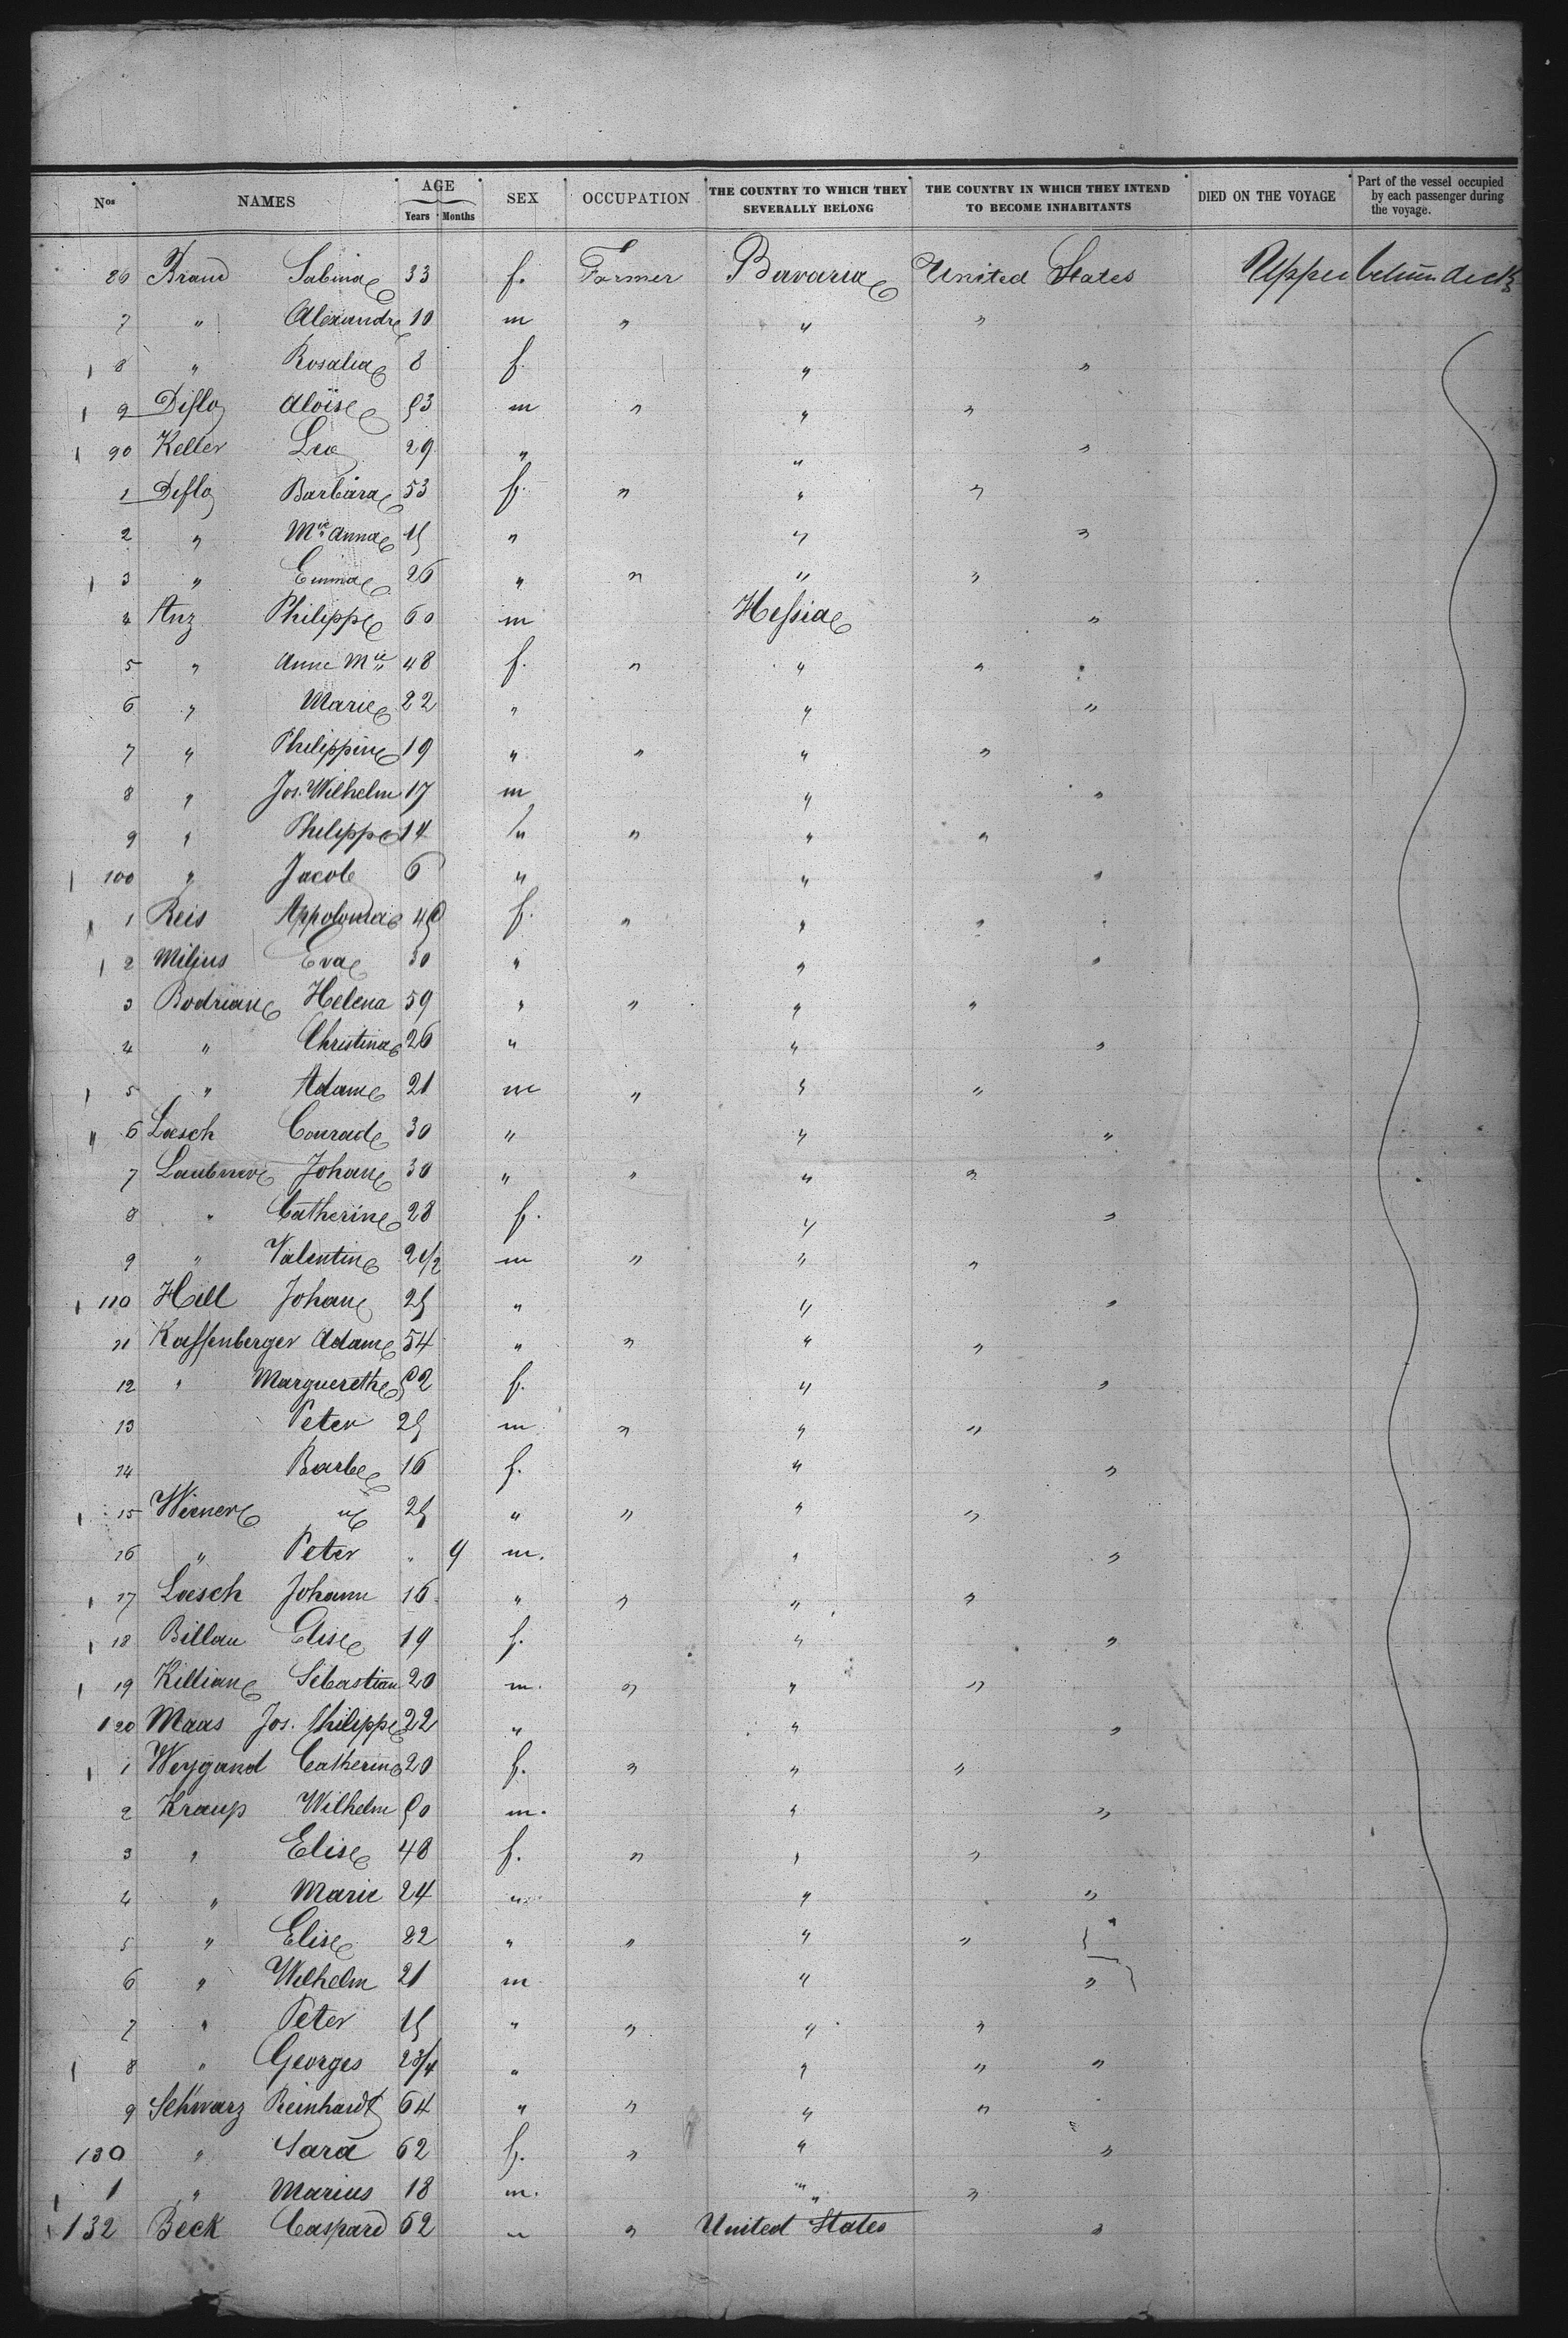 Nos NAMES AGE Years Months SEX OCCUPATION THE COUNTRY TO WHICH THEY SEVERALLY BELONG THE COUNTRY IN WHICH THEY INTEND TO BECOME INHABITANTS DIED ON THE VOYAGE Part of the vessel occupied by each passenger during the voyage.
86 Brand Sabina 33 f. Farmer Bavaria United States Upper deck
7 " Alexandre 10 m " " "
8 " Rosalia 8 f. " "
9 Diflo Aloïse 53 m " " "
90 Keller Leo 29 " " "
1 Diflo Barbara 53 f. " " "
2 " Mie Anna 15 " " "
3 " Emma 26 " " " "
4 Anz Philippe 60 m Hessia "
5 " Anne Mie 48 f. " " "
6 " Marie 22 " " "
7 " Philippine 19 " " " "
8 " Jos. Wilhelm 17 m " "
9 " Philippe 14 " " " "
100 " Jacob 6 " " "
1 Reis Appolonia 45 f. " " "
2 Milius Eva 30 " " "
3 Bodrian Helena 59 " " " "
4 " Christina 26 " " "
5 " Adam 21 m " " "
6 Loesch Conrad 30 " " "
7 Laubner Johan 30 " " " "
8 " Catherine 28 f. " "
9 " Valentin 2 1/2 m " " "
110 Hill Johan 25 " " "
11 Kaffenberger Adam 54 " " " "
12 " Marguerethe 52 f. " "
13 Peter 25 m " " "
14 Barbe 16 f. " "
15 Wiener " 25 " " " "
16 " Peter " 9 m. " "
17 Loesch Johann 16 " " " "
18 Billau Elise 19 f. " "
19 Killian Sebastian 20 m. " " "
120 Maas Jos. Philippe 22 " " "
1 Weygand Catherine 20 f. " " "
2 Kraup Wilhelm 50 m. " "
3 " Elise 48 f. " " "
4 " Marie 24 " " "
5 " Elise 22 " " " "
6 " Wilhelm 21 m " "
7 " Peter 15 " " " "
8 " Georges 2 3/4 " " " "
9 Schwarz Reinhardt 64 " " " "
130 " Sara 62 f. " " "
1 " Marius 18 m. " "
132 Beck Caspard 62 " " United States "